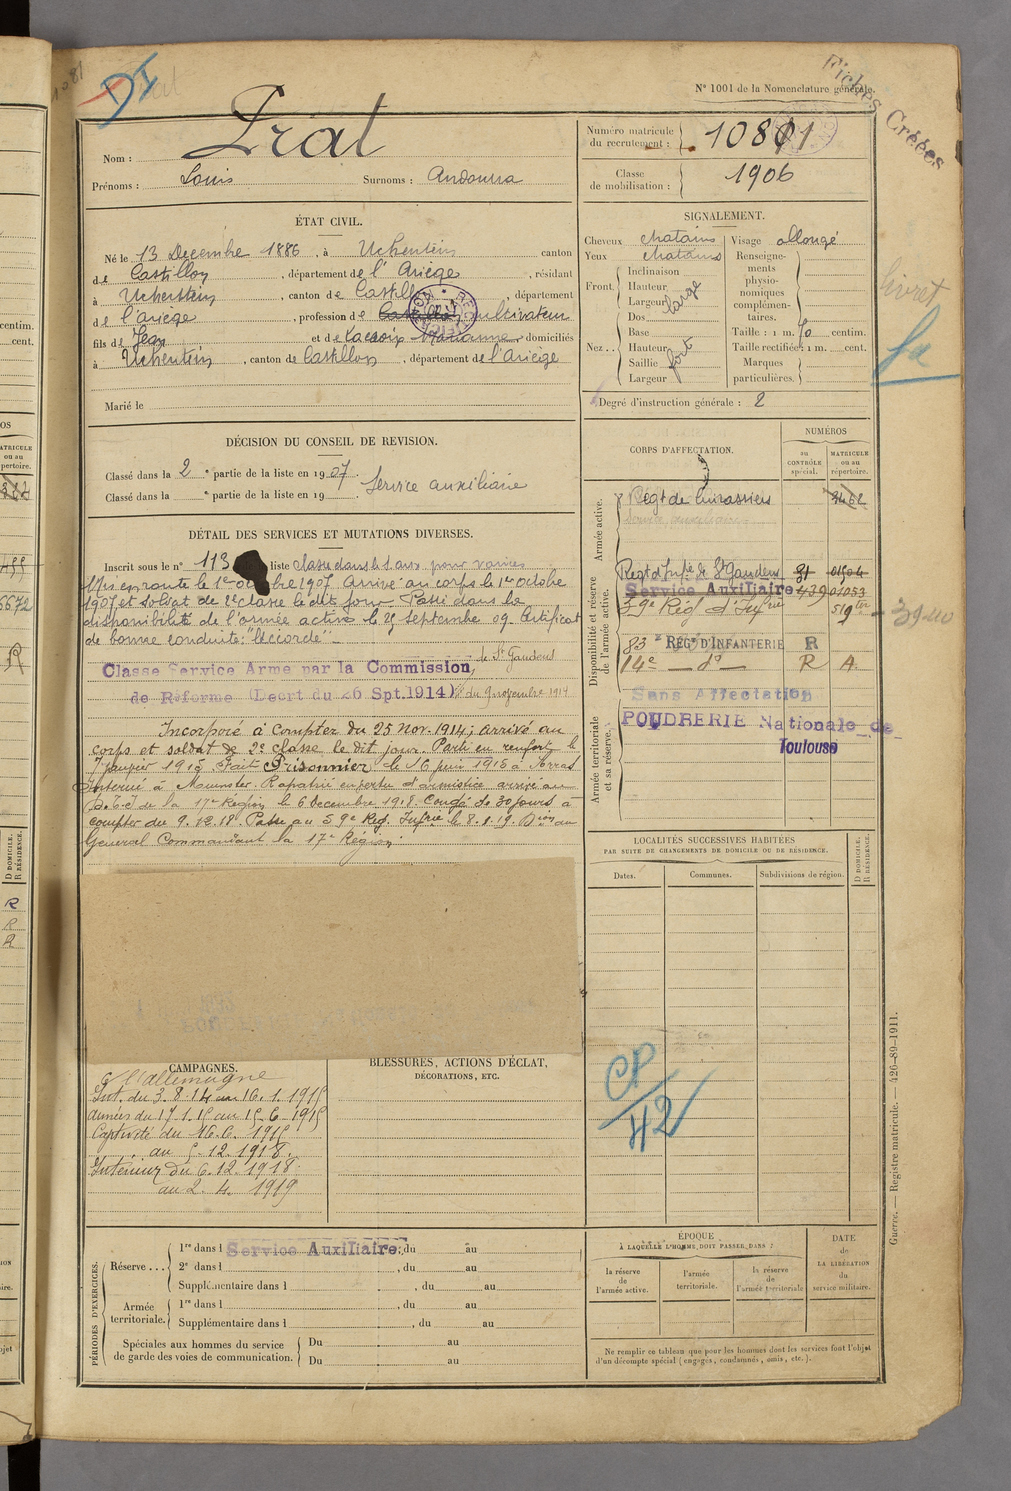 1081
DI
Fiches Créées
N° 1001 de la Nomenclature générale.
Nom : Prat
Prénoms : Louis Surnoms : Andourra
Numéro matricule du recrutement : 1081
Classe de mobilisation : 1906
ÉTAT CIVIL.
Né le 13 Décembre 1886, à Uchentein canton
de Castillon, département de l'Ariège, résidant
à Uchentein, canton de Castillon, département
de l'ariège, profession de cultivateur
fils de Jean et de Lacroix Marianne domiciliés
à Uchentein, canton de Castillon, département de l'Ariège
Marié le
SIGNALEMENT.
Cheveux chatains
Yeux chatains
Front. Inclinaison
Hauteur
Largeur large
Nez.. Dos
Base
Hauteur
Saillie fort
Largeur
Visage allongé
Renseignements physionomiques complémentaires.
Taille : 1 m. 70 centim.
Taille rectifiée : 1 m. cent.
Marques particulières.
Degré d'instruction générale : 2
livret
DÉCISION DU CONSEIL DE REVISION.
Classé dans la 2 e partie de la liste en 1907.
Classé dans la e partie de la liste en 19 .
Service auxiliaire
DÉTAIL DES SERVICES ET MUTATIONS DIVERSES.
Inscrit sous le n° 113 liste classé dans le s. aux. pour varices
Mis en route le 1er octobre 1907. Arrivé au corps le 1er octobre
1907 et soldat de 2e classe le dit jour. Passé dans la
disponibilité de l'armée active le 25 septembre 09. Certificat
de bonne conduite: "accordé".
Classe Service Armé par la Commission de St Gaudens
de Réforme (Decrt du 26 Spt. 1914) du 9 novembre 1914
Incorporé à compter du 25 Nov. 1914; arrivé au
corps et soldat de 2e classe le dit jour. Parti en renfort le
7 janvier 1915 Fait Prisonnier le 16 juin 1915 à Arras
Interné à Munster. Rapatrié en vertu d'armistice arrivé au
D.T.I de la 17e Région le 6 Decembre 1918. Congé de 30 jours à
compter du 9.12.18. Passé au 59e Reg. Infrie le 8.1.19. Dion du
General Commandant la 17e Région.
CORPS D'AFFECTATION.
NUMÉROS
au CONTRÔLE spécial.
MATRICULE ou au répertoire.
Armée active.
Regt de Cuirassiers
Disponibilité et réserve de l'armée active.
Regt d'Infie de St Gaudens 31 01504
Service Auxiliaire 439 01053
59e Rég d'Infrie 519
83e REGt D'INFANTERIE R
14e — do — R A
Armée territoriale et sa réserve.
Sans Affectation
POUDRERIE Nationale de
Toulouse
LOCALITÉS SUCCESSIVES HABITÉES
PAR SUITE DE CHANGEMENTS DE DOMICILE OU DE RÉSIDENCE.
Dates. Communes. Subdivisions de région.
D DOMICILE.
R RÉSIDENCE.
CP
42
CAMPAGNES.
C/ l'allemagne
Int. du 3.8.14 au 16.1.1915
Armées du 17.1.15 au 15.6.1915
Captivité du 16.6.1915
au 5.12.1918.
Intérieur du 6.12.1918
au 2.4.1919
BLESSURES, ACTIONS D'ÉCLAT,
DÉCORATIONS, ETC.
PÉRIODES D'EXERCICES.
Réserve... 1re dans l Service Auxiliaire, du au
2e dans l , du au
Supplémentaire dans l , du au
Armée territoriale. 1re dans l , du au
Supplémentaire dans l , du au
Spéciales aux hommes du service de garde des voies de communication. Du au
Du au
ÉPOQUE
À LAQUELLE L'HOMME DOIT PASSER DANS :
la réserve de l'armée active.
l'armée territoriale.
la réserve de l'armée territoriale
DATE de LA LIBÉRATION du service militaire.
Ne remplir ce tableau que pour les hommes dont les services font l'objet
d'un décompte spécial (engagés, condamnés, omis, etc.).
Guerre. — Registre matricule. — 426-89-1911.